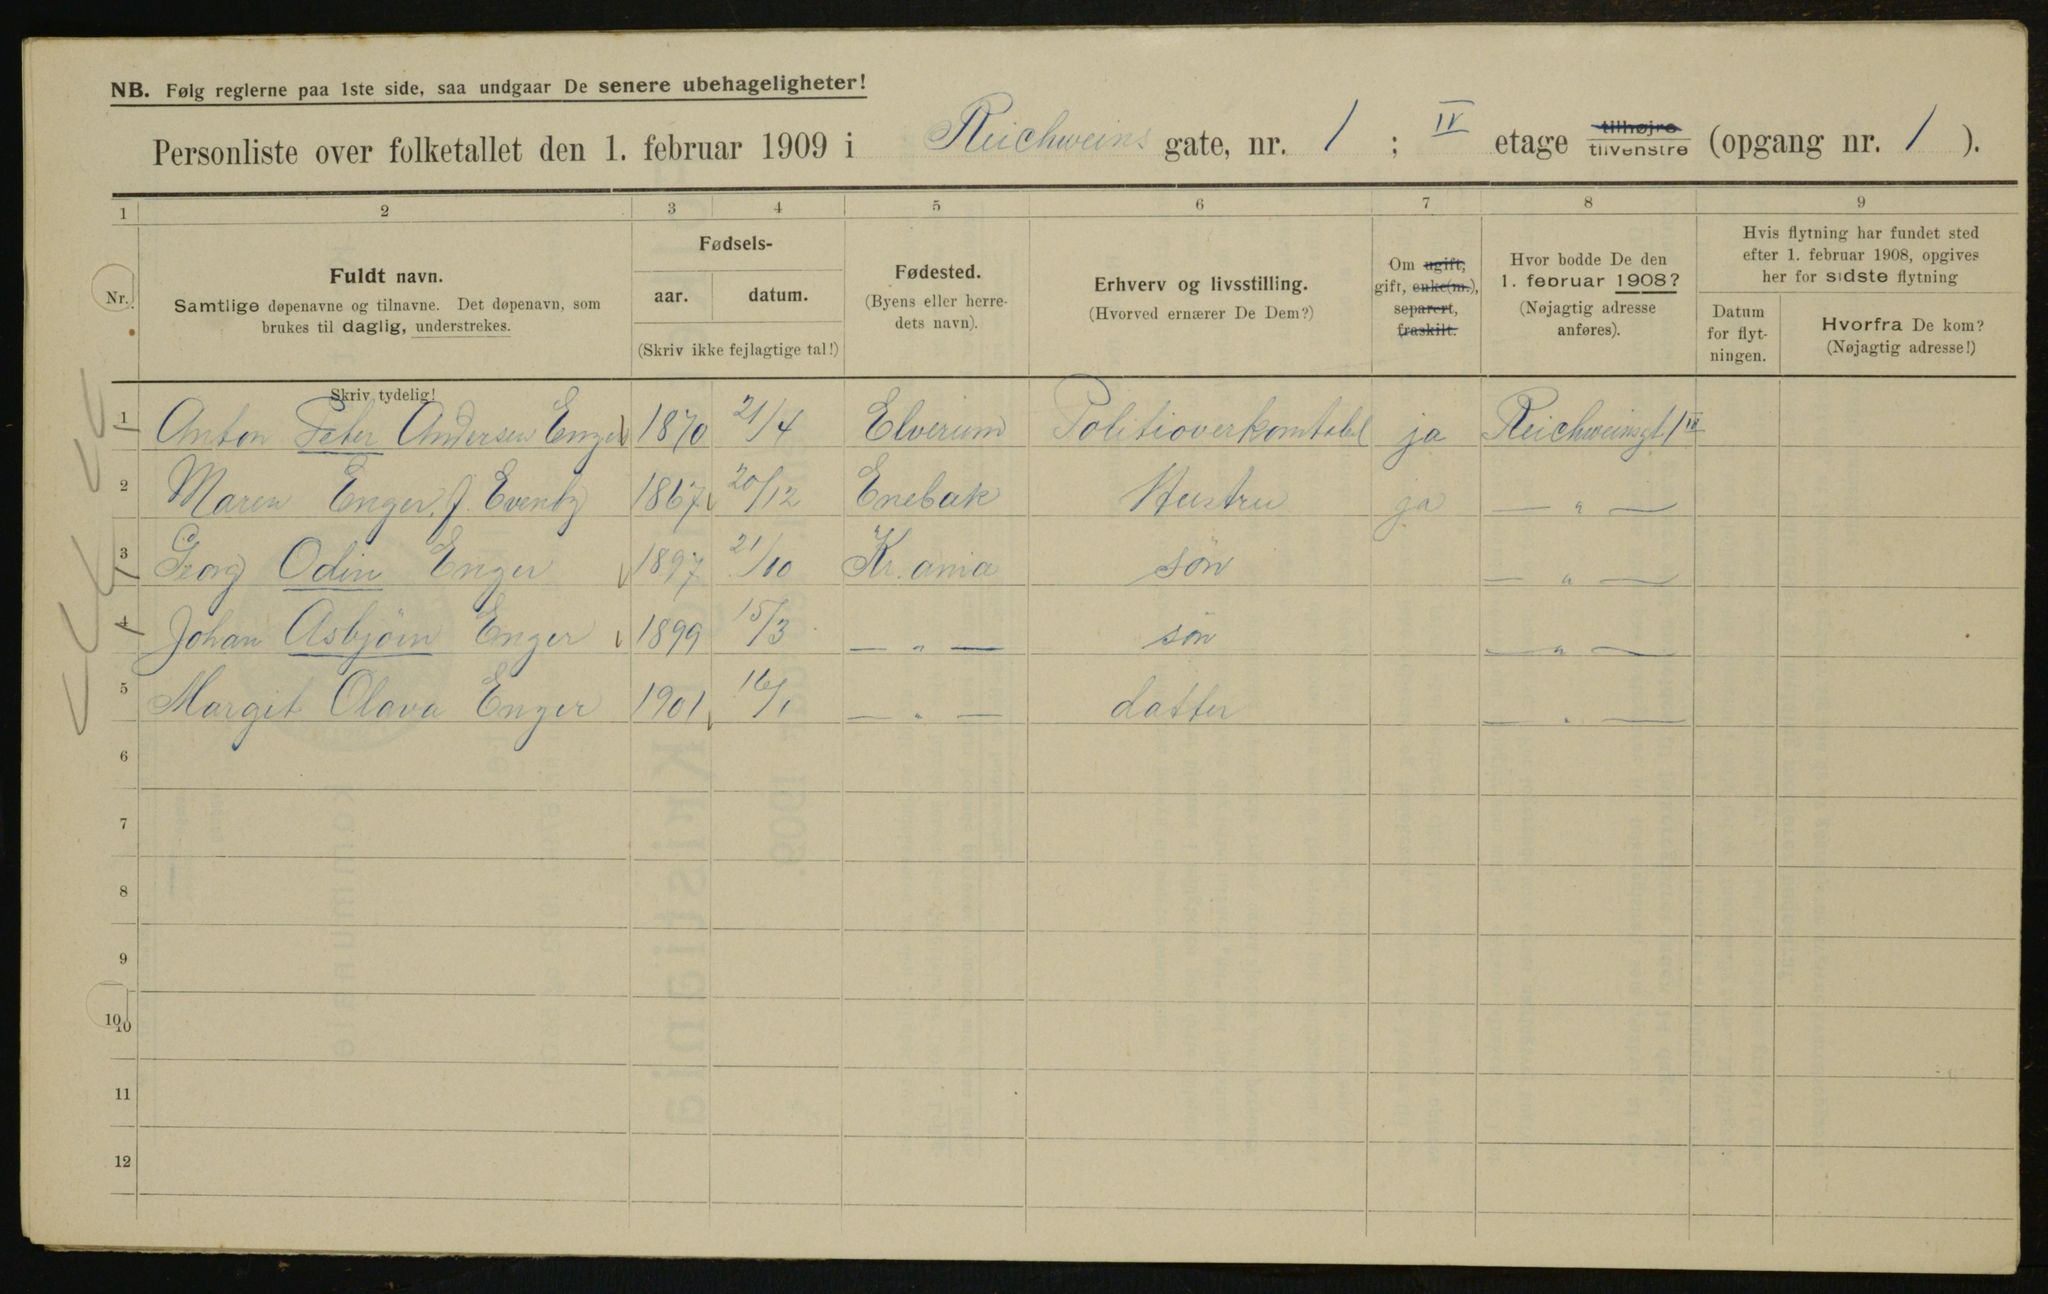 NB. Følg reglerne paa 1ste side, saa undgaar De senere ubehageligheter!
Personliste over folketallet den 1. februar 1909 i Reichweins gate, nr. 1 ; IV etage tilhøjre tilvenstre (opgang nr. 1 ).
1 2 3 4 5 6 7 8 9
Nr.
Fuldt navn.
Samtlige døpenavne og tilnavne. Det døpenavn, som
brukes til daglig, understrekes.
Skriv tydelig!
Fødsels-
aar. datum.
(Skriv ikke fejlagtige tal!)
Fødested.
(Byens eller herre-
dets navn).
Erhverv og livsstilling.
(Hvorved ernærer De Dem?)
Om ugift,
gift, enke(m.),
separert,
fraskilt.
Hvor bodde De den
1. februar 1908?
(Nøjagtig adresse
anføres).
Hvis flytning har fundet sted
efter 1. februar 1908, opgives
her for sidste flytning
Datum
for flyt-
ningen.
Hvorfra De kom?
(Nøjagtig adresse!)
1 Anton Peter Andersen Enger 1870 21/4 Elverum Politioverkomtabel ja Reichweinsgt. 1 IV
2 Maren Enger, f. Evenby 1867 20/12 Enebak Hustru ja — " —
3 Georg Odin Enger 1897 21/10 Kr.ania søn — " —
4 Johan Asbjörn Enger 1899 15/3 — " — søn — " —
5 Margit Olava Enger 1901 16/1 — " — datter — " —
6
7
8
9
10 10
11
12